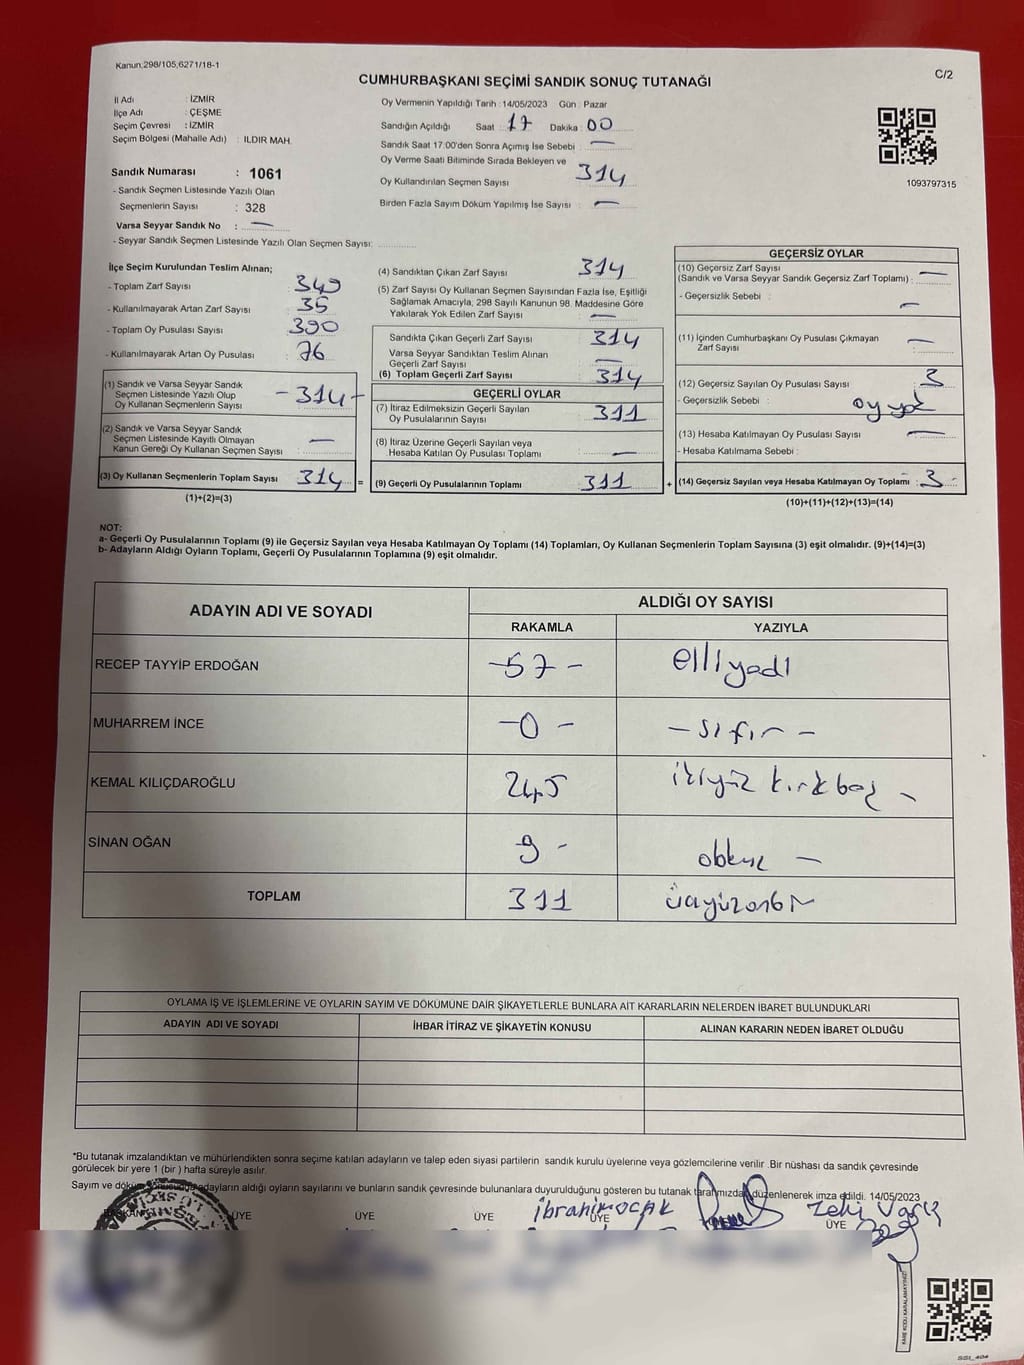 Kanun,298/105,6271/18-1
C/2
CUMHURBAŞKANI SEÇİMİ SANDIK SONUÇ TUTANAĞI
İl Adı : İZMİR
İlçe Adı : ÇEŞME
Seçim Çevresi : İZMİR
Seçim Bölgesi (Mahalle Adı) : ILDIR MAH.
Sandık Numarası : 1061
- Sandık Seçmen Listesinde Yazılı Olan
Seçmenlerin Sayısı : 328
Varsa Seyyar Sandık No : —
- Seyyar Sandık Seçmen Listesinde Yazılı Olan Seçmen Sayısı:
Oy Vermenin Yapıldığı Tarih : 14/05/2023 Gün : Pazar
Sandığın Açıldığı Saat : 17 Dakika : 00
Sandık Saat 17:00'den Sonra Açımış İse Sebebi : —
Oy Verme Saati Bitiminde Sırada Bekleyen ve
Oy Kullandırılan Seçmen Sayısı 314
Birden Fazla Sayım Döküm Yapılmış İse Sayısı : —
1093797315
İlçe Seçim Kurulundan Teslim Alınan;
- Toplam Zarf Sayısı : 349
- Kullanılmayarak Artan Zarf Sayısı : 35
- Toplam Oy Pusulası Sayısı : 390
- Kullanılmayarak Artan Oy Pusulası : 76
(1) Sandık ve Varsa Seyyar Sandık
Seçmen Listesinde Yazılı Olup
Oy Kullanan Seçmenlerin Sayısı - 314 -
(2) Sandık ve Varsa Seyyar Sandık
Seçmen Listesinde Kayıtlı Olmayan
Kanun Gereği Oy Kullanan Seçmen Sayısı : —
(3) Oy Kullanan Seçmenlerin Toplam Sayısı : 314 =
(1)+(2)=(3)
(4) Sandıktan Çıkan Zarf Sayısı 314
(5) Zarf Sayısı Oy Kullanan Seçmen Sayısından Fazla İse, Eşitliği
Sağlamak Amacıyla, 298 Sayılı Kanunun 98. Maddesine Göre
Yakılarak Yok Edilen Zarf Sayısı : —
Sandıkta Çıkan Geçerli Zarf Sayısı : 314
Varsa Seyyar Sandıktan Teslim Alınan
Geçerli Zarf Sayısı : —
(6) Toplam Geçerli Zarf Sayısı : 314
GEÇERLİ OYLAR
(7) İtiraz Edilmeksizin Geçerli Sayılan
Oy Pusulalarının Sayısı : 311
(8) İtiraz Üzerine Geçerli Sayılan veya
Hesaba Katılan Oy Pusulası Toplamı : —
(9) Geçerli Oy Pusulalarının Toplamı : 311 +
GEÇERSİZ OYLAR
(10) Geçersiz Zarf Sayısı
(Sandık ve Varsa Seyyar Sandık Geçersiz Zarf Toplamı) : —
- Geçersizlik Sebebi : —
(11) İçinden Cumhurbaşkanı Oy Pusulası Çıkmayan
Zarf Sayısı : —
(12) Geçersiz Sayılan Oy Pusulası Sayısı : 3
- Geçersizlik Sebebi : oy yok
(13) Hesaba Katılmayan Oy Pusulası Sayısı : —
- Hesaba Katılmama Sebebi :
(14) Geçersiz Sayılan veya Hesaba Katılmayan Oy Toplamı : 3 -
(10)+(11)+(12)+(13)=(14)
NOT:
a- Geçerli Oy Pusulalarının Toplamı (9) ile Geçersiz Sayılan veya Hesaba Katılmayan Oy Toplamı (14) Toplamları, Oy Kullanan Seçmenlerin Toplam Sayısına (3) eşit olmalıdır. (9)+(14)=(3)
b- Adayların Aldığı Oyların Toplamı, Geçerli Oy Pusulalarının Toplamına (9) eşit olmalıdır.
ADAYIN ADI VE SOYADI ALDIĞI OY SAYISI
RAKAMLA YAZIYLA
RECEP TAYYİP ERDOĞAN -57 - elliyedi
MUHARREM İNCE -0 - - sıfır -
KEMAL KILIÇDAROĞLU 245 ikiyüz kırkbeş -
SİNAN OĞAN 9 - dokuz -
TOPLAM 311 üçyüzonbir
OYLAMA İŞ VE İŞLEMLERİNE VE OYLARIN SAYIM VE DÖKÜMÜNE DAİR ŞİKAYETLERLE BUNLARA AİT KARARLARIN NELERDEN İBARET BULUNDUKLARI
ADAYIN ADI VE SOYADI İHBAR İTİRAZ VE ŞİKAYETİN KONUSU ALINAN KARARIN NEDEN İBARET OLDUĞU
*Bu tutanak imzalandıktan ve mühürlendikten sonra seçime katılan adayların ve talep eden siyasi partilerin sandık kurulu üyelerine veya gözlemcilerine verilir .Bir nüshası da sandık çevresinde
görülecek bir yere 1 (bir ) hafta süreyle asılır.
Sayım ve döküm sonucunda adayların aldığı oyların sayılarını ve bunların sandık çevresinde bulunanlara duyurulduğunu gösteren bu tutanak tarafımızdan düzenlenerek imza edildi. 14/05/2023
BAŞKAN ÜYE ÜYE ÜYE ÜYE ÜYE
ibrahim ocak Zeki
KARE KODU KARALAMAYINIZ!